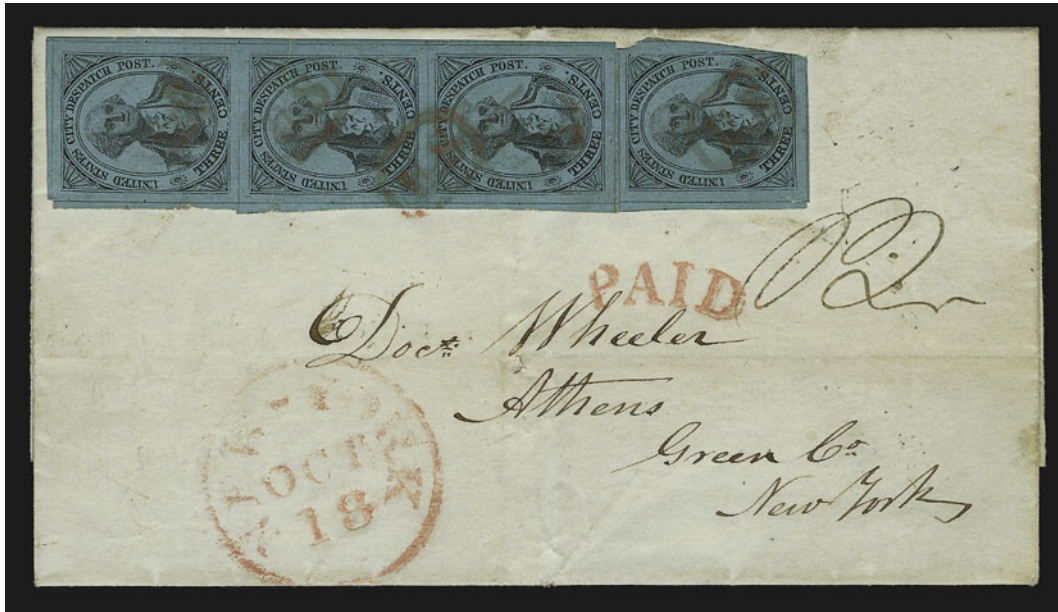 UNITED STATES CITY DESPATCH POST.
THREE CENTS.
UNITED STATES CITY DESPATCH POST.
THREE CENTS.
UNITED STATES CITY DESPATCH POST.
THREE CENTS.
UNITED STATES CITY DESPATCH POST.
THREE CENTS.
PAID
Doct. Wheeler
Athens
Green Co
New York
NEW-YORK
OCT
18